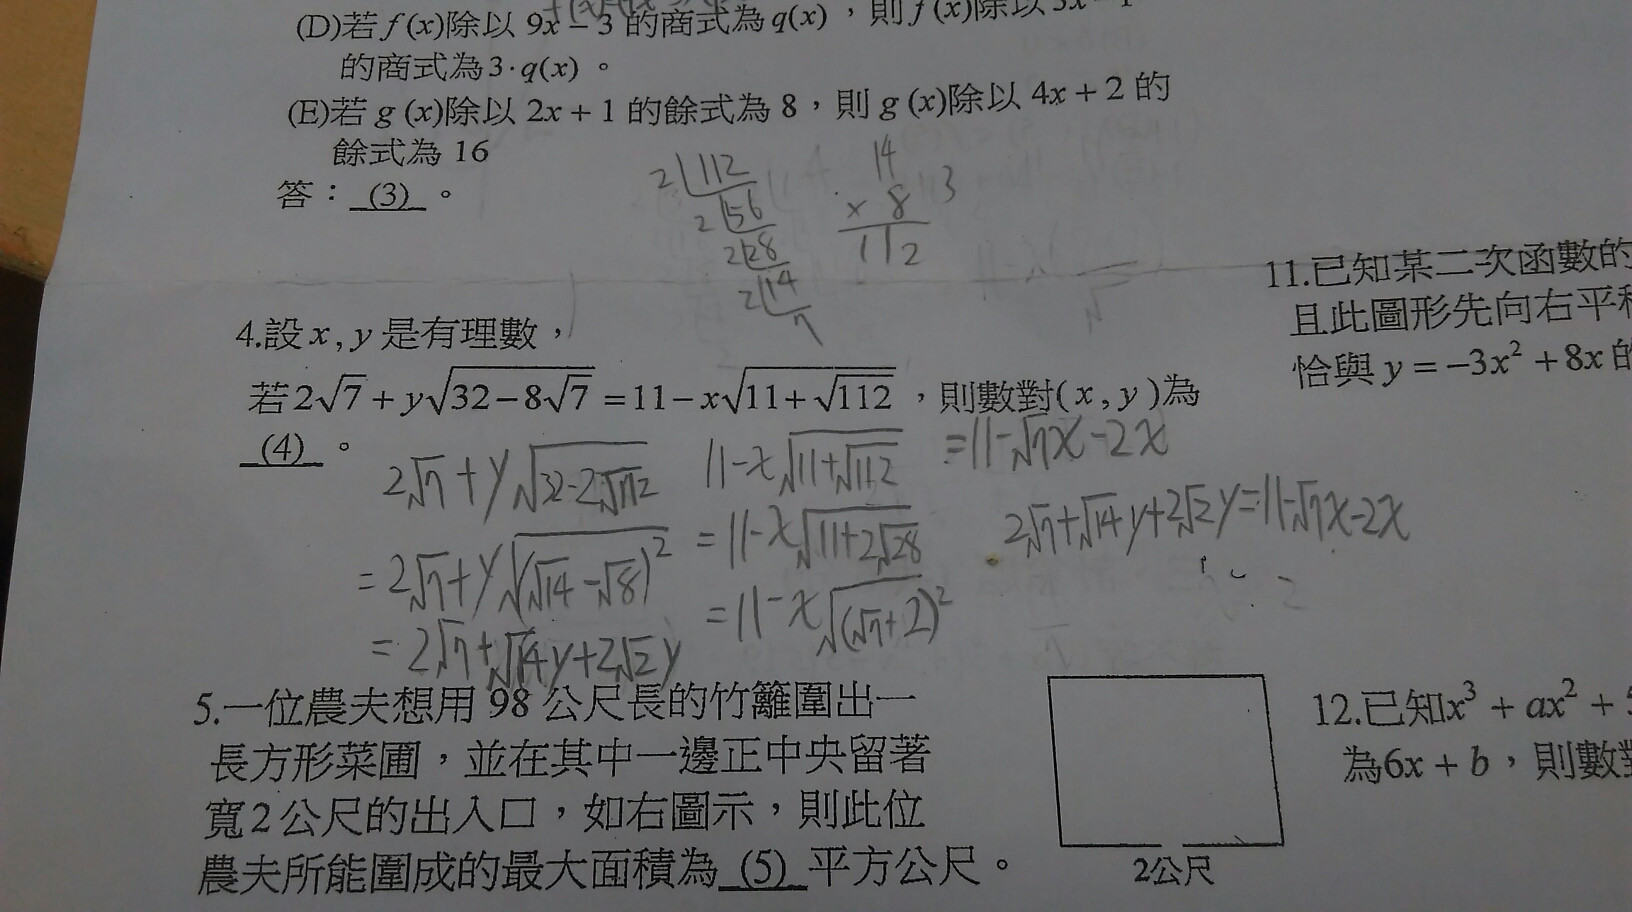 (D)若 f (x)除以 9x − 3 的商式為 q(x)，則 f (x)除以 3x − 1
的商式為 3 · q(x) 。
(E)若 g (x)除以 2x + 1 的餘式為 8，則 g (x)除以 4x + 2 的
餘式為 16
答： (3) 。
2 112
2 56
2 28
2 14
7
14
× 8
112
3
4.設 x , y 是有理數，
若 2√7 + y√(32 − 8√7) = 11 − x√(11 + √112) ，則數對( x , y )為
(4) 。
2√7 + y√(32-2√112)
= 2√7 + y√(√14 - √8)²
= 2√7 + √14y + 2√2y
11 - x√(11+√112)
= 11 - x√(11+2√28)
= 11 - x√(√7+2)²
= 11 - √7x - 2x
2√7 + √14y + 2√2y = 11 - √7x - 2x
5.一位農夫想用 98 公尺長的竹籬圍出一
長方形菜圃，並在其中一邊正中央留著
寬 2 公尺的出入口，如右圖示，則此位
農夫所能圍成的最大面積為 (5) 平方公尺。
2公尺
11.已知某二次函數的
且此圖形先向右平
恰與 y = −3x² + 8x 的
12.已知x³ + ax² + 5
為6x + b，則數對